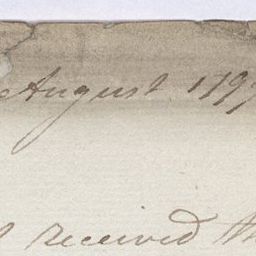 August 1797
received the